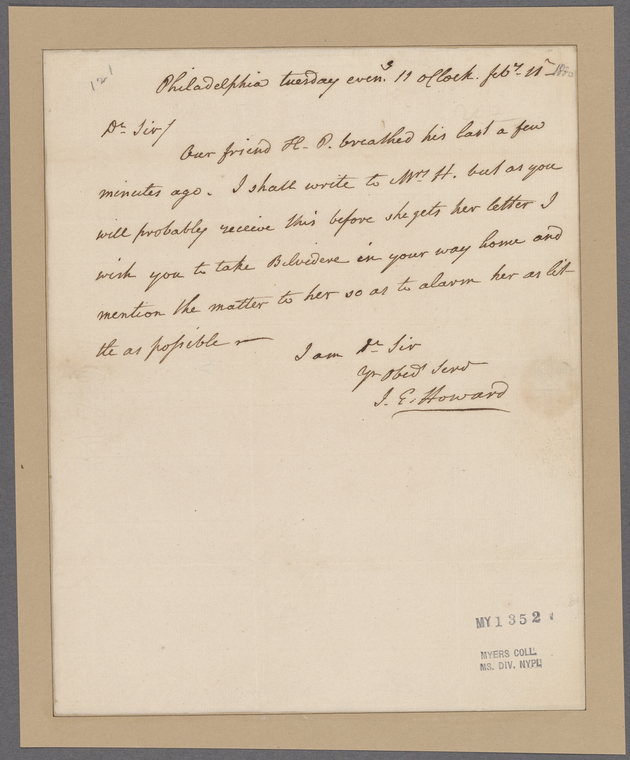 121
Philadelphia tuesday eveng. 11 oClock. feby. 11th
Dr Sir/
Our friend H. P. breathed his last a few
minutes ago. I shall write to Mrs H. but as you
will probably receive this before she gets her letter I
wish you to take Belvidere in your way home and
mention the matter to her so as to alarm her as lit
tle as possible
I am Dr Sir
Yr Obed Serv
J. E. Howard
MY 1352
MYERS COLL.
MS. DIV. NYPL